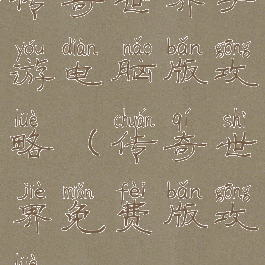 传奇世界手
yóu diàn nǎo bǎn gōng
游电脑版攻
lüè chuán qí shì
略（传奇世
jiè miǎn fèi bǎn gōng
界免费版攻
lüè